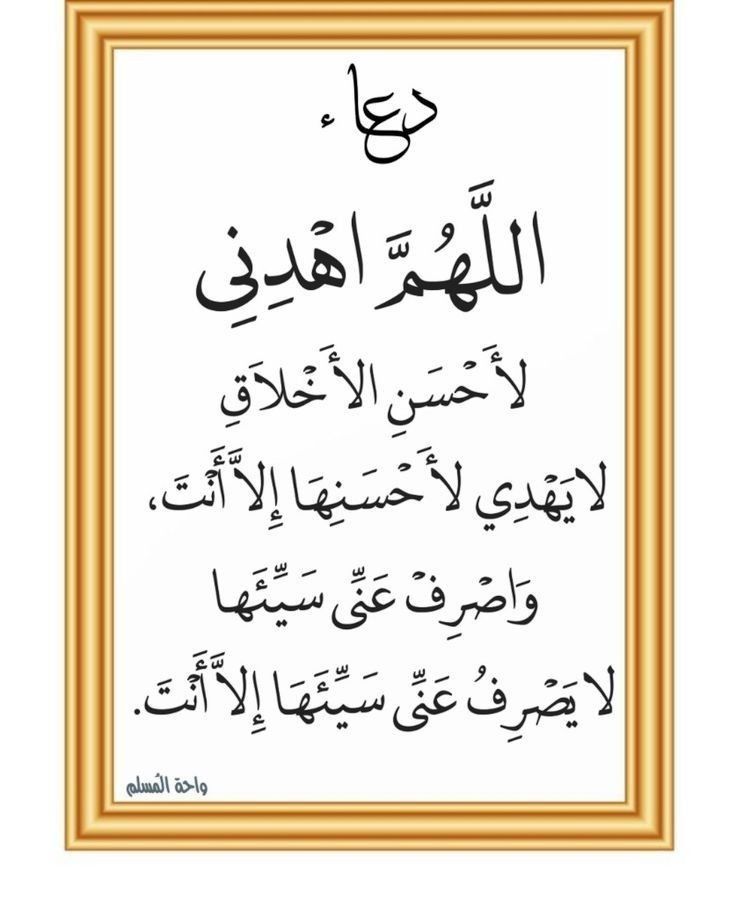 دعاء
اللَّهُمَّ اهْدِنِي
لأَحْسَنِ الأَخْلاَقِ
لايَهْدِي لأَحْسَنِهَا إِلاَّ أَنْتَ،
وَاصْرِفْ عَنِّى سَيِّئَها
لا يَصْرِفُ عَنِّى سَيِّئَهَا إِلاَّ أَنْتَ.
واحة المُسلم